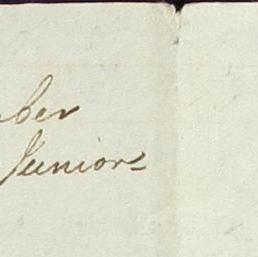 ber
Junior